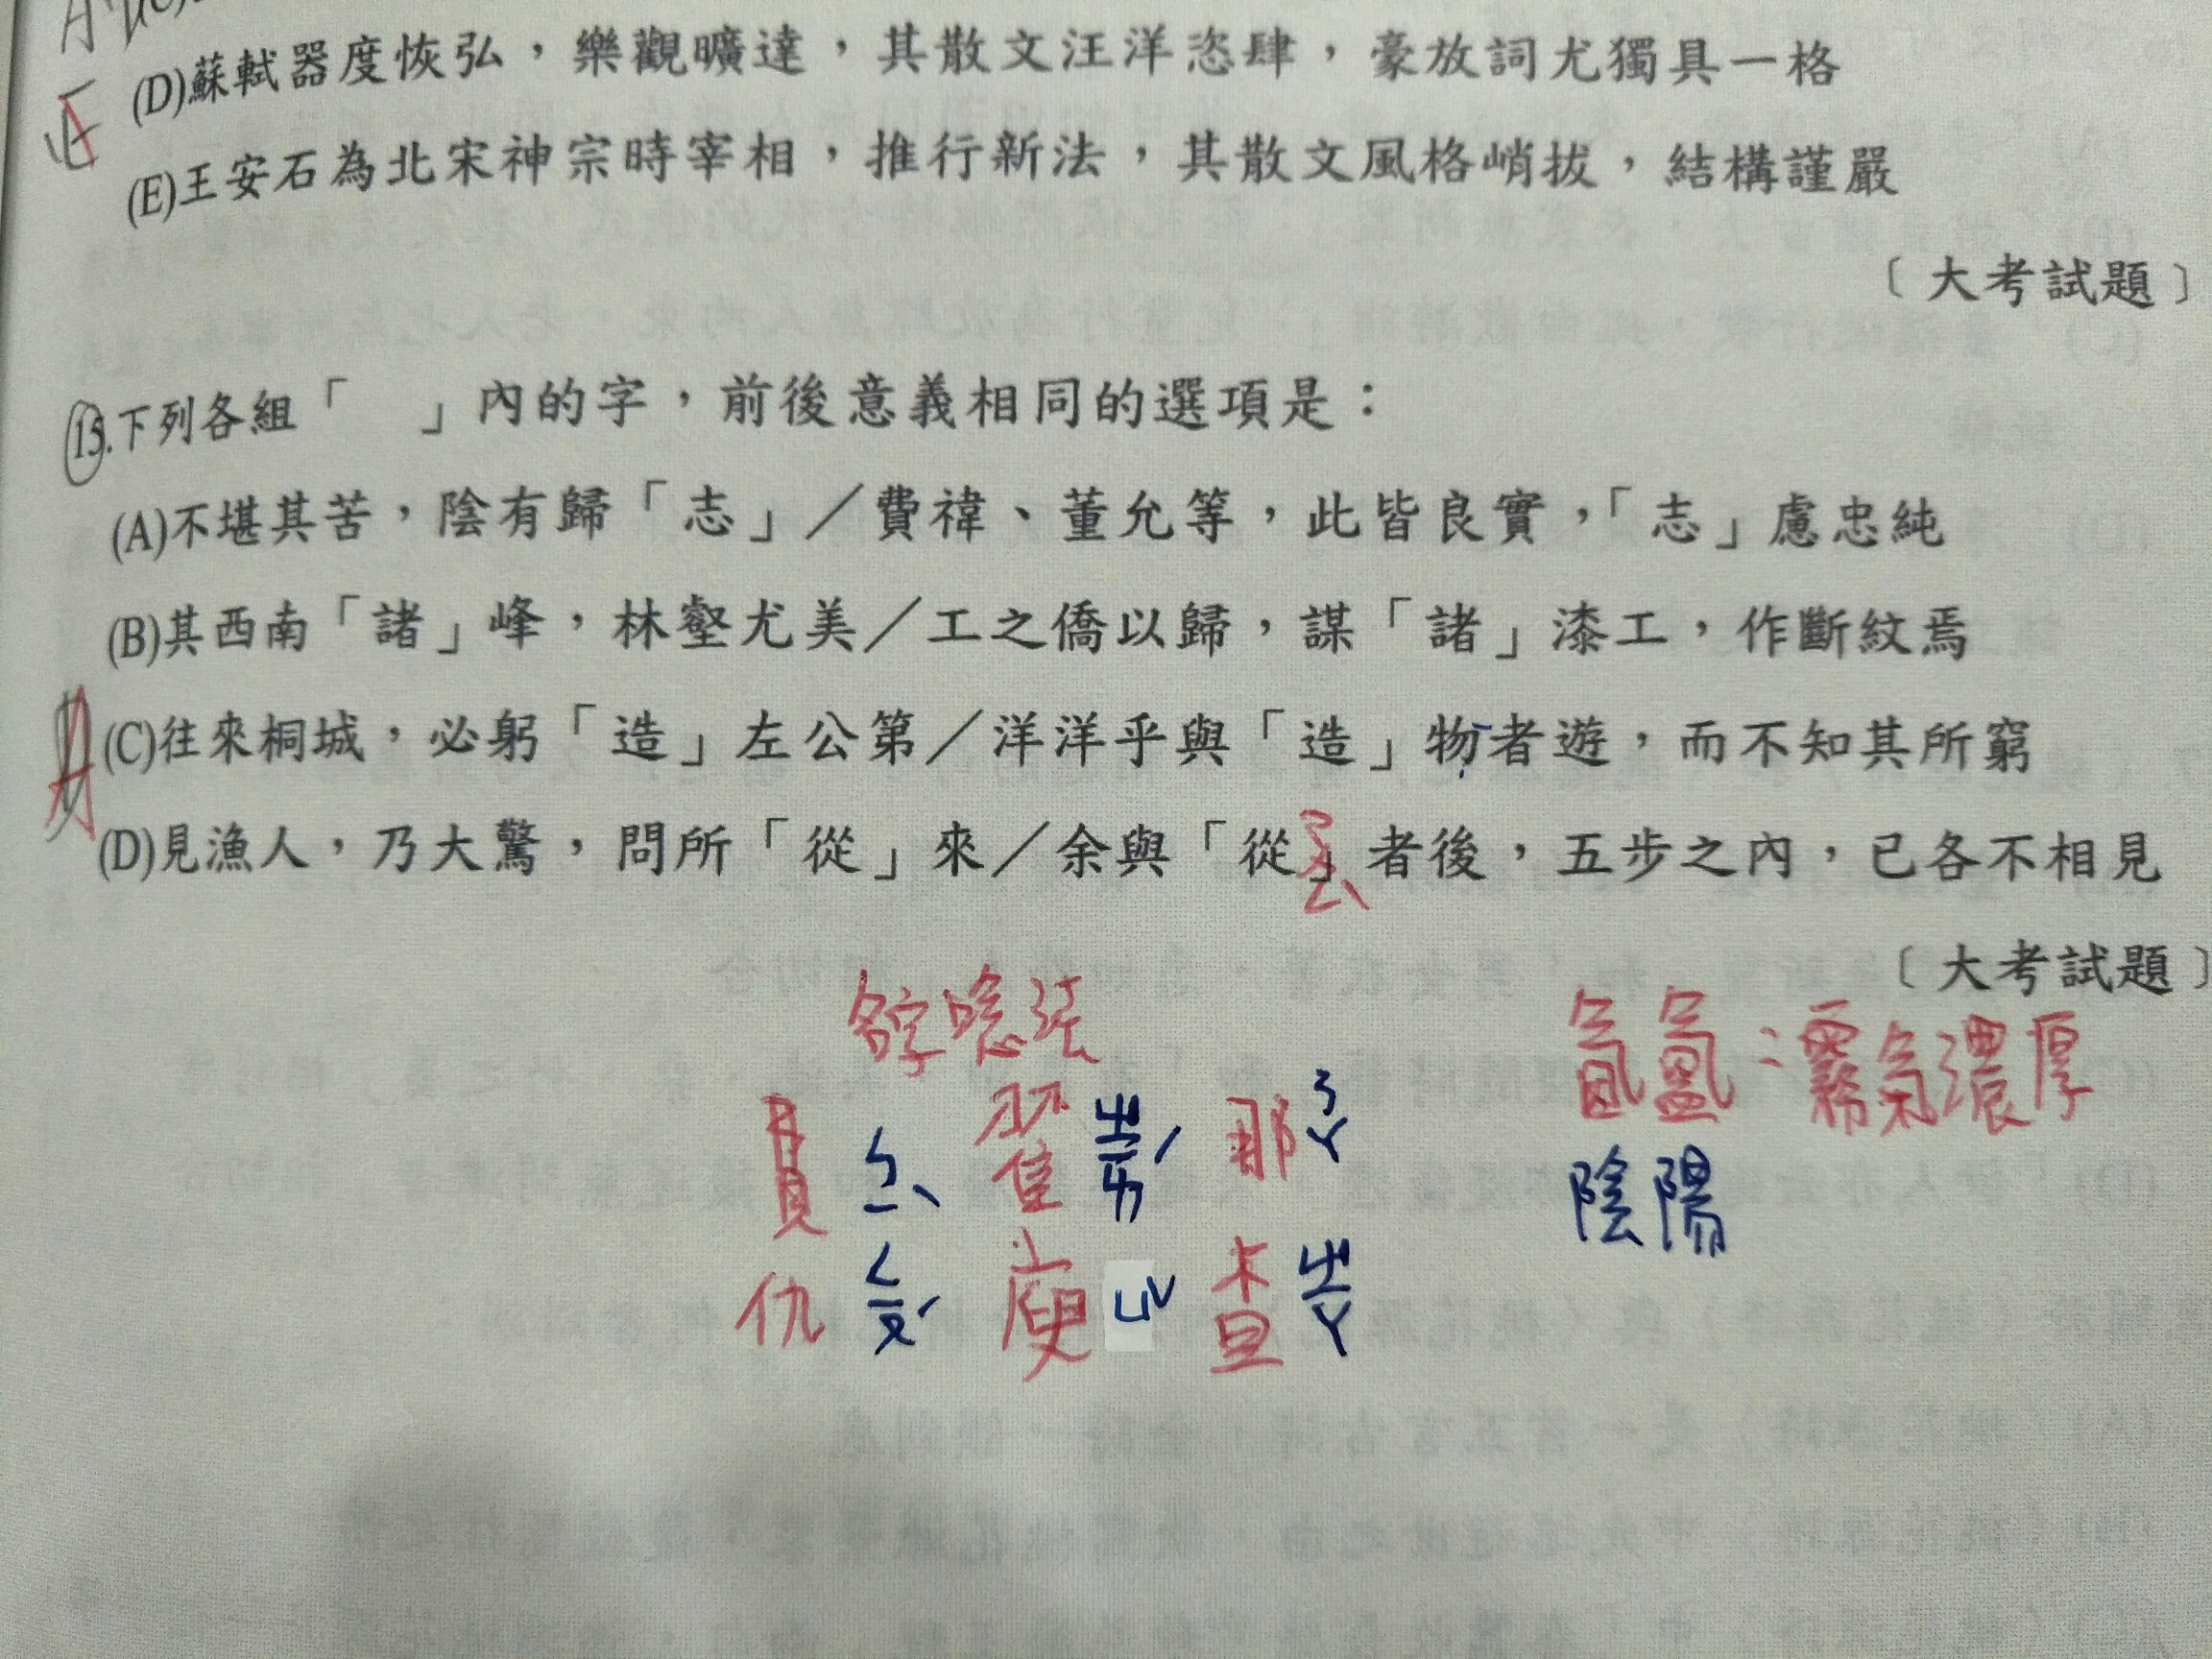 (D)蘇軾器度恢弘，樂觀曠達，其散文汪洋恣肆，豪放詞尤獨具一格
(E)王安石為北宋神宗時宰相，推行新法，其散文風格峭拔，結構謹嚴
〔大考試題〕
13.下列各組「　」內的字，前後意義相同的選項是：
(A)不堪其苦，陰有歸「志」／費禕、董允等，此皆良實，「志」慮忠純
(B)其西南「諸」峰，林壑尤美／工之僑以歸，謀「諸」漆工，作斷紋焉
(C)往來桐城，必躬「造」左公第／洋洋乎與「造」物者遊，而不知其所窮
(D)見漁人，乃大驚，問所「從」來／余與「從」者後，五步之內，已各不相見
ㄗㄨㄥˋ
〔大考試題〕
氤氳：霧氣濃厚
員 ㄩㄣˋ 翟 ㄓㄞˊ 那 ㄋㄚ
陰陽
仇 ㄑㄧㄡˊ 庾 ㄩˇ 查 ㄓㄚ